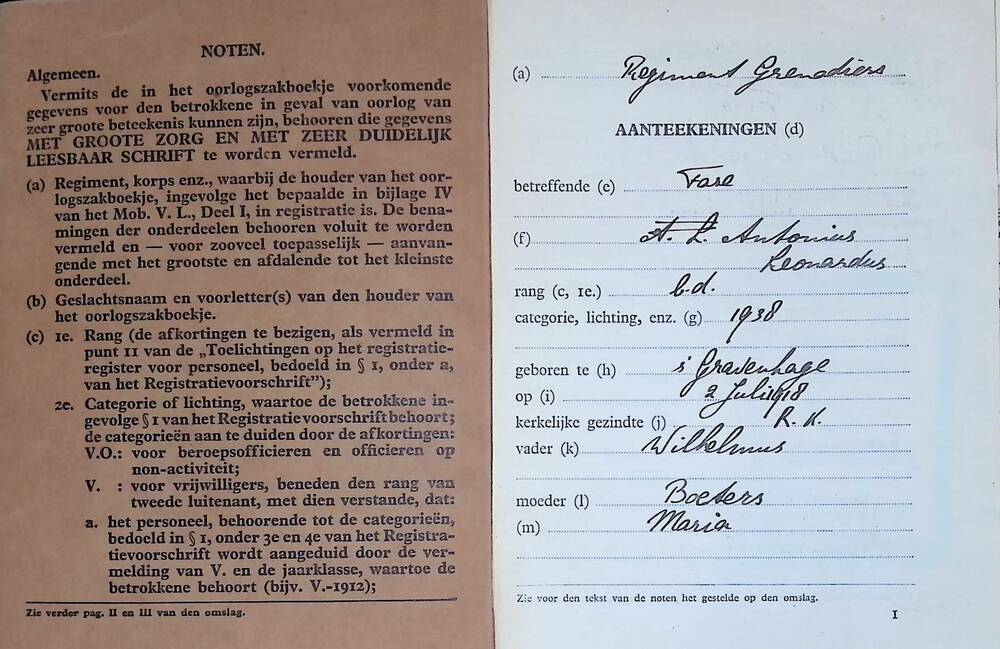 NOTEN.
Algemeen.
Vermits de in het oorlogszakboekje voorkomende
gegevens voor den betrokkene in geval van oorlog van
zeer groote beteekenis kunnen zijn, behooren die gegevens
MET GROOTE ZORG EN MET ZEER DUIDELIJK
LEESBAAR SCHRIFT te worden vermeld.
(a) Regiment, korps enz., waarbij de houder van het oor-
logszakboekje, ingevolge het bepaalde in bijlage IV
van het Mob. V. L., Deel I, in registratie is. De bena-
mingen der onderdeelen behooren voluit te worden
vermeld en — voor zooveel toepasselijk — aanvan-
gende met het grootste en afdalende tot het kleinste
onderdeel.
(b) Geslachtsnaam en voorletter(s) van den houder van
het oorlogszakboekje.
(c) 1e. Rang (de afkortingen te bezigen, als vermeld in
punt 11 van de „Toelichtingen op het registratie-
register voor personeel, bedoeld in § 1, onder a,
van het Registratievoorschrift");
2e. Categorie of lichting, waartoe de betrokkene in-
gevolge § 1 van het Registratievoorschrift behoort;
de categorieën aan te duiden door de afkortingen:
V.O.: voor beroepsofficieren en officieren op
non-activiteit;
V. : voor vrijwilligers, beneden den rang van
tweede luitenant, met dien verstande, dat:
a. het personeel, behoorende tot de categorieën,
bedoeld in § 1, onder 3e en 4e van het Registra-
tievoorschrift wordt aangeduid door de ver-
melding van V. en de jaarklasse, waartoe de
betrokkene behoort (bijv. V.-1912);
Zie verder pag. II en III van den omslag.
(a) Regiment Grenadiers
AANTEEKENINGEN (d)
betreffende (e) Fase
(f) A. L. Antonius
Leonardus
rang (c, 1e.) b.d.
categorie, lichting, enz. (g) 1938
geboren te (h) 's Gravenhage
op (i) 2 Juli 1918
kerkelijke gezindte (j) R. K.
vader (k) Wilhelmus
moeder (l) Boeters
(m) Maria
Zie voor den tekst van de noten het gestelde op den omslag.
1